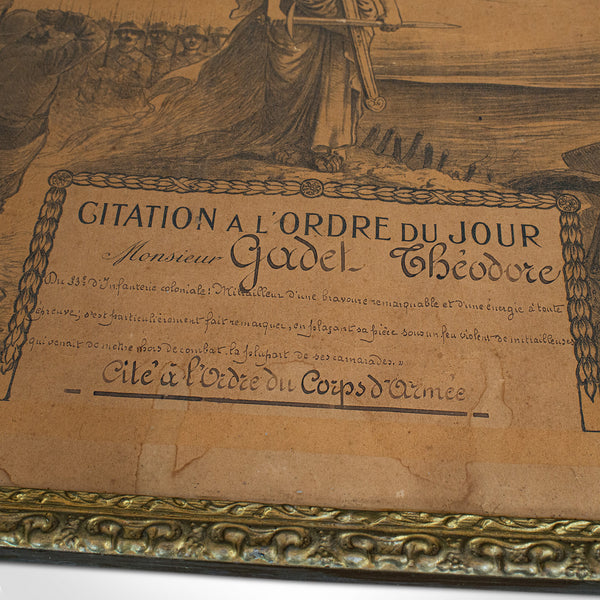 CITATION A L'ORDRE DU JOUR
Monsieur Gadel Théodore
Du 33e d'Infanterie coloniale: Mitrailleur d'une bravoure remarquable et d'une énergie à toute
épreuve; s'est particulièrement fait remarquer, en plaçant sa pièce sous un feu violent de mitrailleuses
qui venait de mettre hors de combat la plupart de ses camarades. »
Cité à l'Ordre du Corps d'Armée